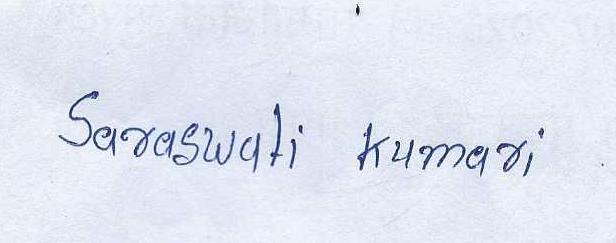 Saraswati Kumari